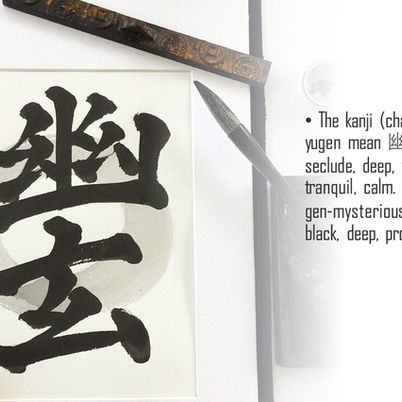 幽
玄
• The kanji (
yugen mean
seclude, deep,
tranquil, calm.
gen-mysterious
black, deep,